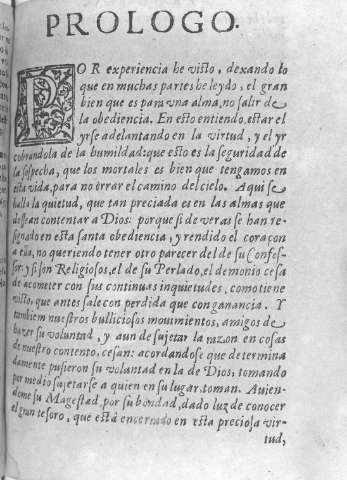 PROLOGO.
POR experiencia he visto, dexando lo
que en muchas partes he leydo, el gran
bien que es para vna alma, no salir de
la obediencia. En esto entiendo, estar el
yrse adelantando en la virtud, y el yr
cobrandola de la humildad: que esto es la seguridad de
la sospecha, que los mortales es bien que tengamos en
esta vida, para no errar el camino del cielo. Aqui se
halla la quietud, que tan preciada es en las almas que
dessean contentar a Dios: porque si de veras se han re-
signado en esta santa obediencia, y rendido el coraçon
a ella, no queriendo tener otro parecer del de su Confes-
sor: y si son Religiosos, el de su Perlado, el demonio cessa
de acometer con sus continuas inquietudes, como tiene
visto, que antes sale con perdida que con ganancia. Y
tambien nuestros bulliciosos mouimientos, amigos de
hazer su voluntad, y aun de sujetar la razon en cosas
de nuestro contento, cesan: acordandose que determina
damente pusieron su voluntad en la de Dios, tomando
por medio sujetarse a quien en su lugar toman. Auien-
dome su Magestad, por su bondad, dado luz de conocer
el gran tesoro, que está encerrado en esta preciosa vir-
tud,